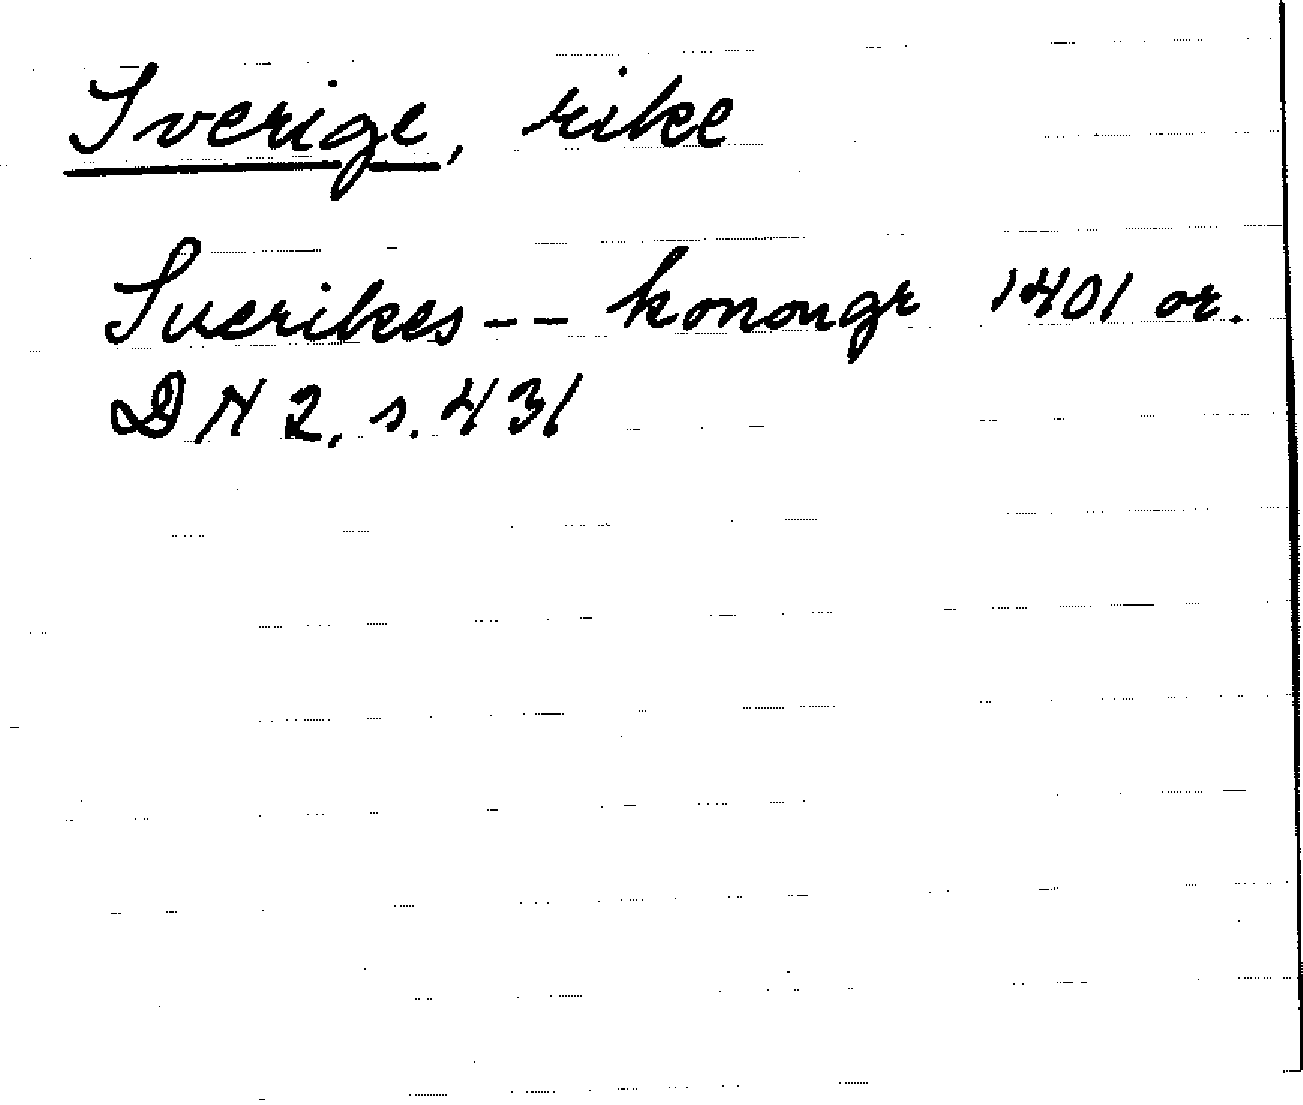 Sverige, rike
Suerikes -- konongr 1401 or.
DN 2, s. 431